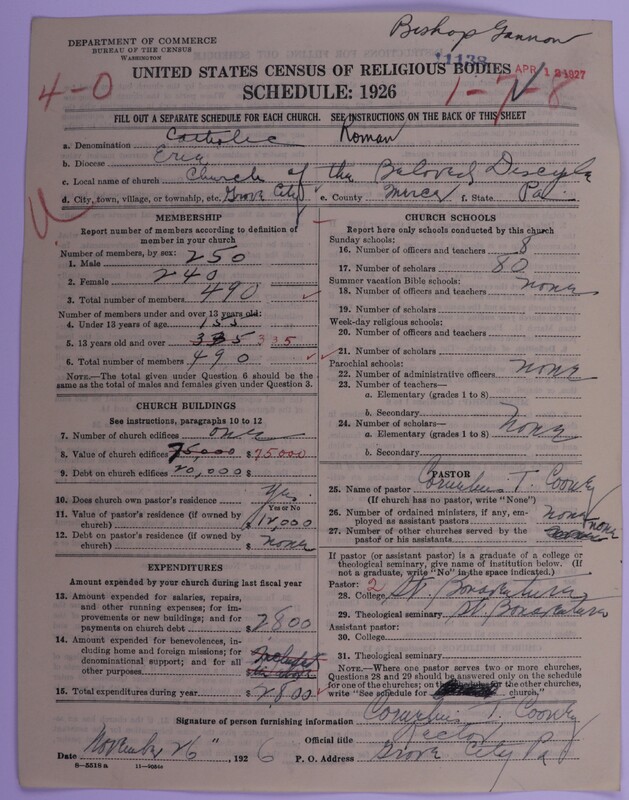 Bishop Gannon
DEPARTMENT OF COMMERCE
BUREAU OF THE CENSUS
WASHINGTON
11138
APR 12 1927
UNITED STATES CENSUS OF RELIGIOUS BODIES
SCHEDULE: 1926
4-0
1-7-8
FILL OUT A SEPARATE SCHEDULE FOR EACH CHURCH. SEE INSTRUCTIONS ON THE BACK OF THIS SHEET
a. Denomination Catholic Roman
b. Diocese Erie
c. Local name of church Church of the Beloved Disciple
d. City, town, village, or township, etc. Grove City e. County Mercer f. State Pa.
MEMBERSHIP
Report number of members according to definition of member in your church
Number of members, by sex:
1. Male 250
2. Female 240
3. Total number of members 490
Number of members under and over 13 years old:
4. Under 13 years of age 155
5. 13 years old and over 335 335
6. Total number of members 490
NOTE.—The total given under Question 6 should be the same as the total of males and females given under Question 3.
CHURCH BUILDINGS
See instructions, paragraphs 10 to 12
7. Number of church edifices one
8. Value of church edifices 75,000 $ 75000
9. Debt on church edifices 20,000 $
10. Does church own pastor's residence? Yes
Yes or No
11. Value of pastor's residence (if owned by church) $ 12,000
12. Debt on pastor's residence (if owned by church) $ none
EXPENDITURES
Amount expended by your church during last fiscal year
13. Amount expended for salaries, repairs, and other running expenses; for improvements or new buildings; and for payments on church debt $ 2800
14. Amount expended for benevolences, including home and foreign missions; for denominational support; and for all other purposes
15. Total expenditures during year $ 2800
CHURCH SCHOOLS
Report here only schools conducted by this church
Sunday schools:
16. Number of officers and teachers 8
17. Number of scholars 80
Summer vacation Bible schools:
18. Number of officers and teachers none
19. Number of scholars
Week-day religious schools:
20. Number of officers and teachers
21. Number of scholars
Parochial schools:
22. Number of administrative officers none
23. Number of teachers—
a. Elementary (grades 1 to 8)
b. Secondary
24. Number of scholars—
a. Elementary (grades 1 to 8) none
b. Secondary
PASTOR
25. Name of pastor Cornelius T. Cooney
(If church has no pastor, write "None")
26. Number of ordained ministers, if any, employed as assistant pastors none
27. Number of other churches served by the pastor or his assistants none
If pastor (or assistant pastor) is a graduate of a college or theological seminary, give name of institution below. (If not a graduate, write "No" in the space indicated.)
Pastor: 2
28. College St. Bonaventure
29. Theological seminary St. Bonaventure
Assistant pastor:
30. College
31. Theological seminary
NOTE.—Where one pastor serves two or more churches, Questions 28 and 29 should be answered only on the schedule for one of the churches; on the schedules for the other churches, write "See schedule for church."
Signature of person furnishing information Cornelius T. Cooney
Official title Rector
Date November 26", 1926 P. O. Address Grove City Pa
8—5518 a